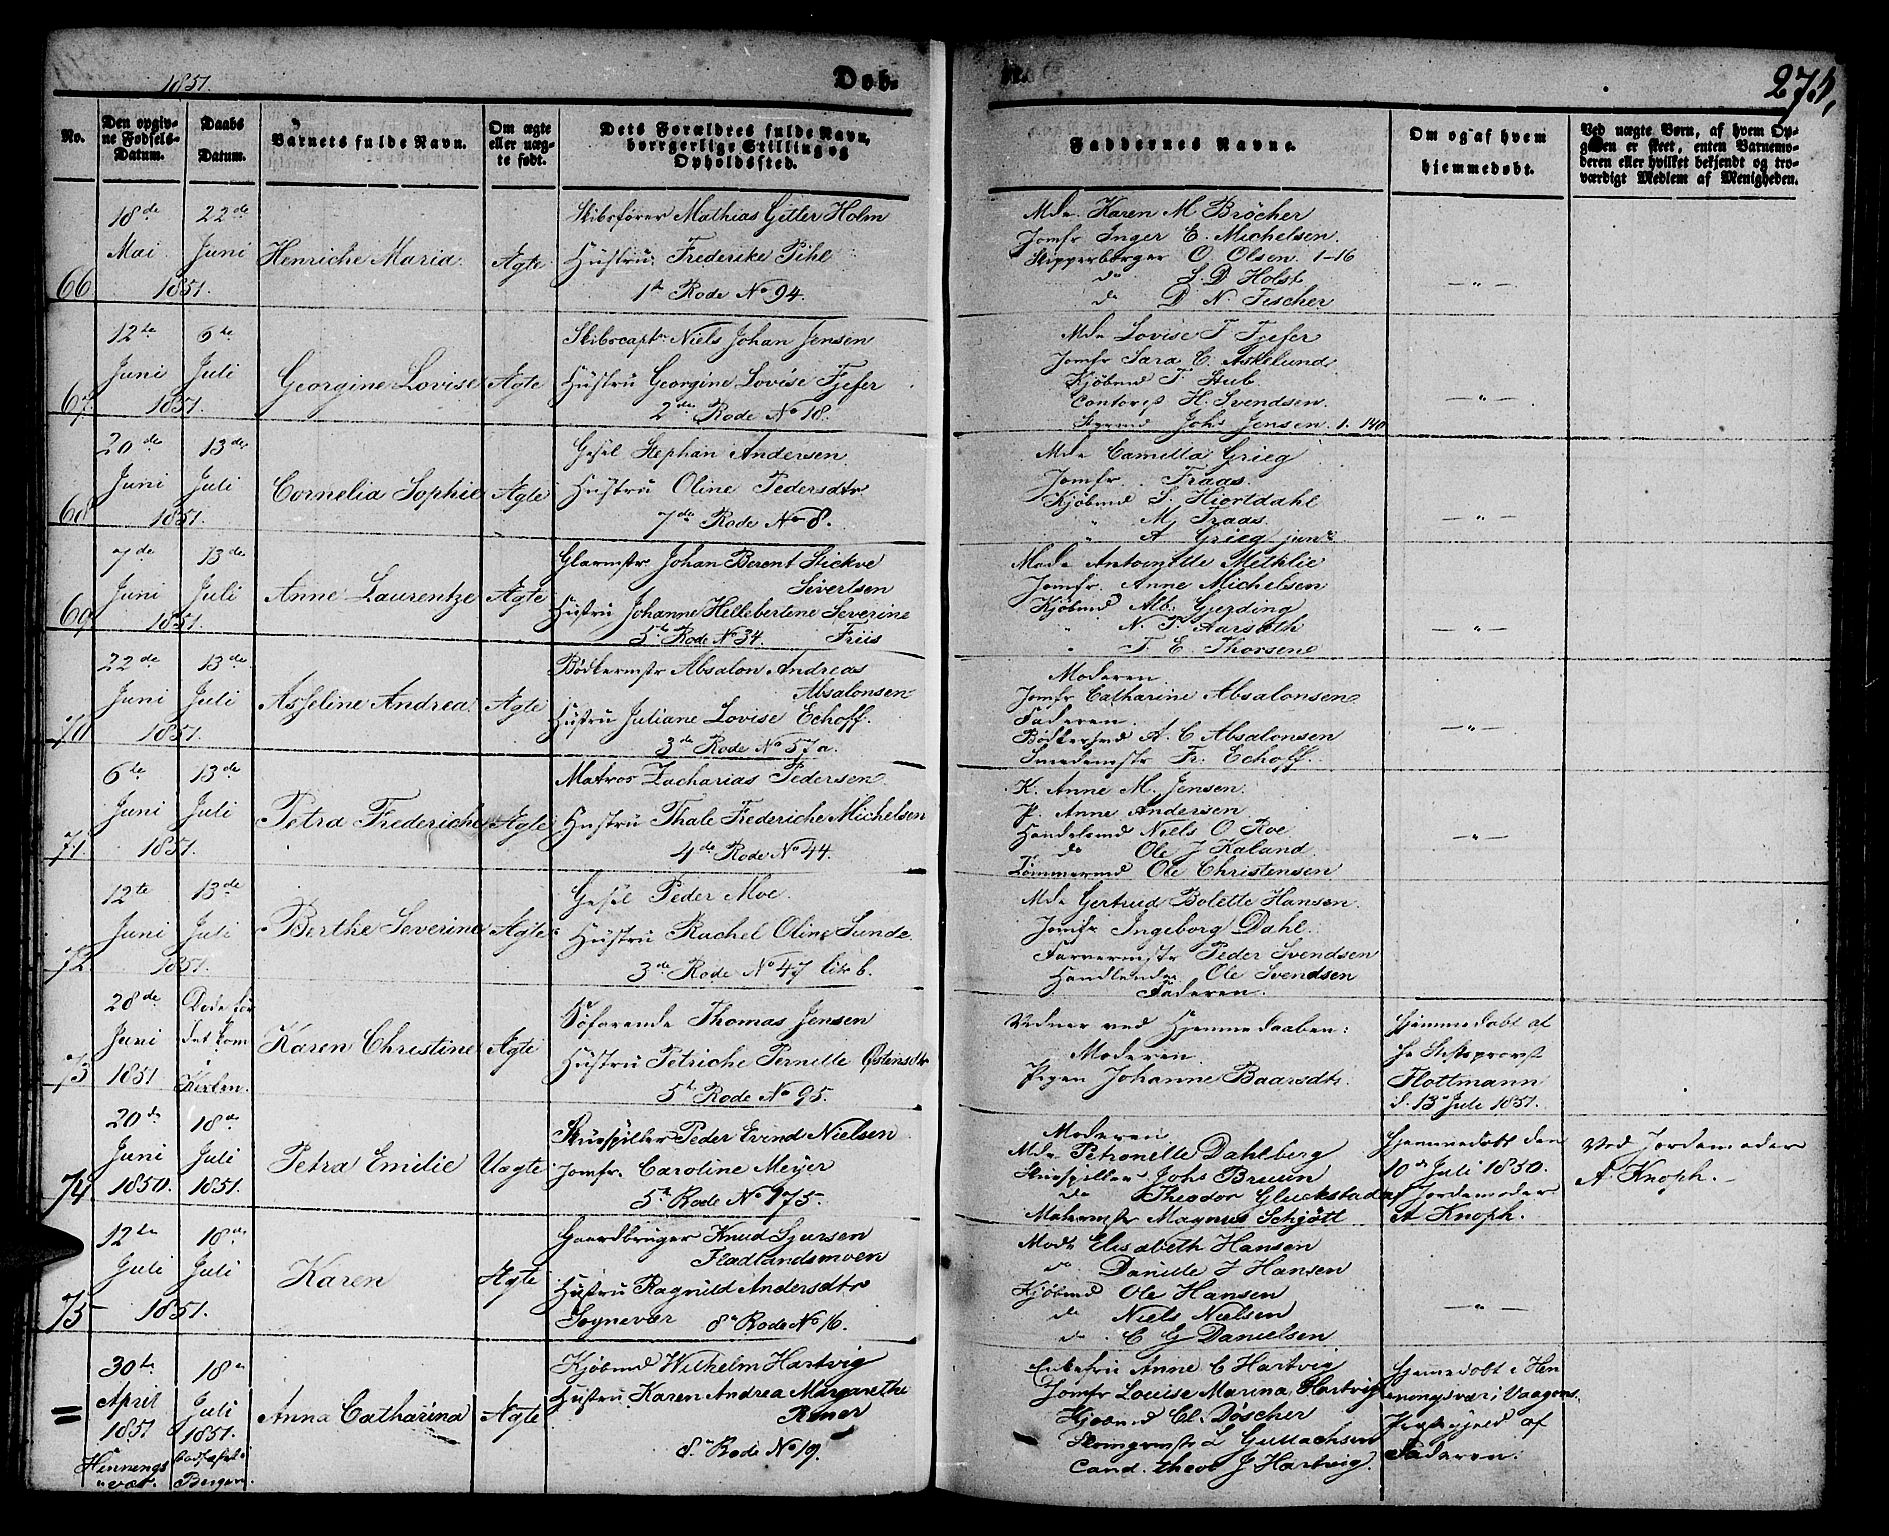 1851.
Døb-
te.
271.
No.
Den opgiv-
ne Fødsels-
Datum.
Daabs
Datum.
Barnets fulde Navn.
Om ægte
eller uæg-
te født.
Dets Forældres fulde Navn,
borgerlige Stilling og
Opholdssted.
Faddernes Navne.
Om og af hvem
hjemmedøbt.
Ved uægte Børn, af hvem Op-
given er skeet, enten Barnemo-
deren eller hvilket bekjendt og tro-
værdigt Medlem af Menigheden.
66
18de
Mai
1851.
22de
Juni
Henriche Maria
Ægte
Skibsfører Mathias Gitler Holm
Hustru Frederike Pihl
1te Rode No 94.
Mde Karen M Bröcher
Jomfr Inger E. Michelsen.
Skipperborger O. Olsen. 1-16
do S. D Holst
do D N. Fischer
— " —
67
12te
Juni
1851.
6te
Juli
Georgine Lovise
Ægte
Skibscaptn Niels Johan Jensen
Hustru Georgine Lovise Fjefer
2de Rode No 18.
Mde Lovise F Fjefer
Jomfr Sara C. Askelund.
Kjøbmd T. Stub.
Contorist H. Svendsen.
Styrmd Johs Jensen. 1. 140
— " —
68
20de
Juni
1851.
13de
Juli
Cornelia Sophie
Ægte
Gesel Stephan Andersen.
Hustru Oline Pedersdtr
7de Rode No 8.
Mde Camilla Grieg
Jomfr. Traas.
Kjøbmd S. Hiortdahl
" M. Traas.
" A Grieg junr
— " —
69
7de
Juni
1851.
13de
Juli
Anne Laurentze
Ægte
Glarmstr Johan Berent Stickve
Sivertsen
Hustru Johanne Hellebertene Severine
5te Rode No 34. Friis
Mde Antonille Methlie
Jomfr. Anne Michelsen
Kjøbmd Alb. Gjerding
" N. T. Aarsæth
" T. E. Thorsene
— " —
70
22de
Juni
1851.
13de
Juli
Asseline Andrea
Ægte
Bödkermstr Absalon Andreas
Absalonsen
Hustru Juliane Lovise Echoff.
3de Rode No 57a.
Moderen
Jomfr Catharine Absalonsen
Faderen.
Bödkersvd A. C Absalonsen
Smedemstr Fr. Echoff.
— " —
71.
6te
Juni
1851.
13de
Juli
Petra Frederiche
Ægte
Matros Zacharias Pedersen
Hustru Thale Frederiche Michelsen
4de Rode No 44.
K. Anne M. Jensen.
P. Anne Andersen
Handelsmd Niels O Roe
do Ole J Kaland.
Tömmermd Ole Christensen
— " —
72
12te
Juni
1851.
13de
Juli
Berthe Severine
Ægte
Gesel Peder Moe.
Hustru Rachel Oline Sunde.
3de Rode No 47 litr b.
Mde Gertrud Bolette Hansen.
Jomfr Ingeborg Dahl.
Farvermstr Peder Svendsen
Handlende Ole Svendsen
Faderen.
73
28de
Juni
1851
Døde før
det kom
i Kirken.
Karen Christine
Ægte
Söfarende Thomas Jensen
Hustru Petriche Pernille Østensdtr
5te Rode No 95.
Vidner ved Hjemmedaaben:
Moderen.
Pigen Johanne Baarsdtr.
Hjemmedøbt af
Hr Stiftsprovst
Flottmann
d. 13de Juli 1851.
74
20de
Juni
1850.
18de
Juli
1851.
Petra Emilie
Uægte
Skuespiller Peder Evind Nielsen
Jomfr. Caroline Meyer
5te Rode No 175.
Moderen.
Mde Petronelle Dahlberg
Skuespiller Johs Bruun
do Theodor Gluckstad
Malermstr Magnus Schjött
Hjemmedøbt den
10de Juli 1850.
af Jordemoder
A Knoph.
Ved Jordemoder
A. Knoph.
75
12te
Juli
1851.
18de
Juli
Karen
Ægte
Gaardbruger Knud Sjursen
Fladlandsmoen
Hustru Ragnild Andersdtr
Sognevær 8de Rode No 16.
Mde Elisabeth Hansen
do Danille J Hansen
Kjøbmd Ole Hansen
do Niels Nielsen
do C G Danielsen
— " —
=
30te
April
1851
Hennings
vær.
18de
Juli
1851.
Bergen.
Anna Catharina
Ægte
Kjøbmd Wilhelm Hartvig
Hustru Karen Andrea Margarethe
Rener
8de Rode No 19.
Enkefru Anne C Hartvig
Jomfr Louise Marina Hartvig
Kjøbmd Cl. Döscher
L Gullachsen
Cand. theol J Hartvig.
Hjemmedøbt i Hen
ningsvær i Vaagens
Præstegjeld af
Faderen.